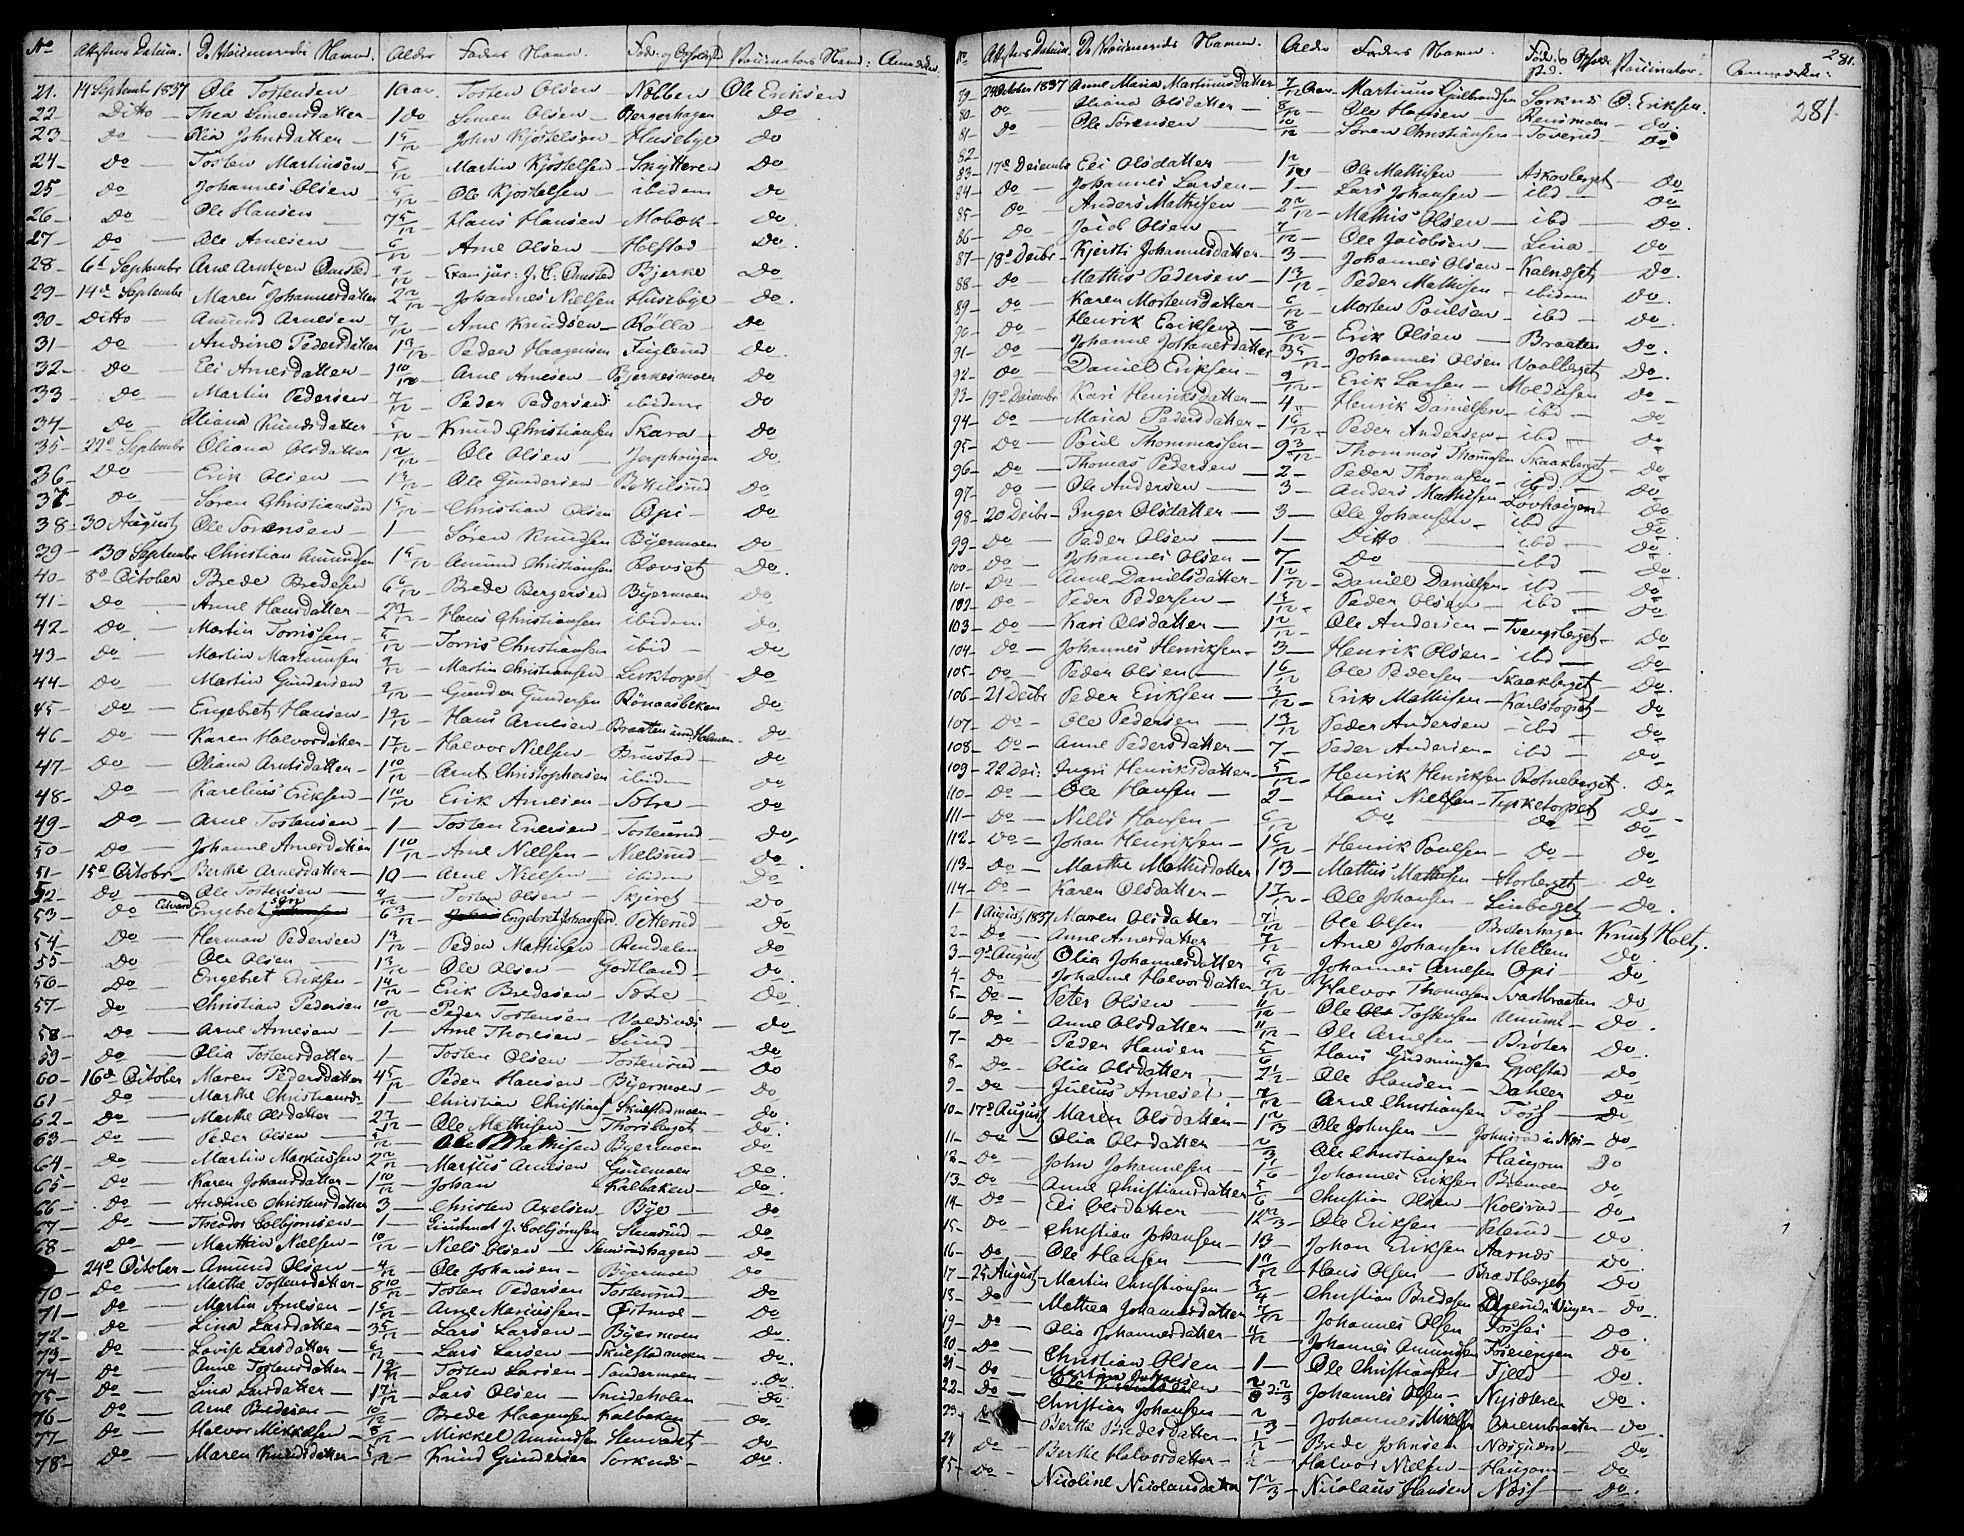 No Attestens Datum. De Vaccineredes Navne. Alder Faders Navn. Føde- og Opholdssted Vaccinators Navn: Anmærkn:
21. 14 September 1837 Ole Tostensen 1 Aar. Tosten Olsen Nebben Ole Eriksen
22 Ditto Thea Simensdatter 1 do Simen Olsen Bergerhagen Do
23 Do Olia Johnsdatter 1 5/12 John Kjöstelsen Huseby Do
24 Do Tosten Martinsen 5/12 Martin Kjöstelsen Skytteren Do
25 Do Johannes Olsen 5/12 Ole Kjöstelsen ibidem Do
26 Do Ole Hansen 7 5/12 Hans Hansen Mobæk Do
27 Do Ole Arnesen 6/12 Arne Olsen Holstad Do
28 6t September Arne Arntzen Omsted 9/12 Exam: jur: J. C. Omsted Bjerke Do
29 14de September Maren Johannesdatter 2 2/12 Johannes Nielsen Husebye Do
30 Ditto Amund Arnesen 7/12 Arne Knudsen Rölla Do
31 Do Andrine Pedersdatter 1 3/12 Peder Haagensen Fuglerud Do
32 Do Eli Arnesdatter 1 10/12 Arne Arnesen Bjerkesmoen Do
33 Do Martin Pedersen 7/12 Peder Pedersen ibidem Do
34 Do Oliana Knudsdatter 5/12 Knud Christiansen Skara Do
35 22de September Oliana Olsdatter 1 2/12 Ole Olsen Jerphougen Do
36 Do Erik Olsen Ole Gundersen Bottelsrud Do
37 Do Søren Christiansen Christian Olsen Opi Do
38 30 August Ole Sorensen 1 Sören Knudsen Byermoen Do
39 30 September Christian Amundsen Amund Christiansen Rævset Do
40 8de October Brede Bredesen 6 6/12 Brede Bergersen Byermoen Do
41 Do Anne Hansdatter Hans Christiansen ibidem Do
42 Do Martin Torrissen Torris Christiansen ibid Do
43 Do Martin Martinsen 9/12 Martin Christiansen Do
44 Do Martin Gundersen 9/12 Gunder Gundersen Rönaasbæken Do
45 Do Engebret Hansen Hans Arnesen Braaten Do
46 Do Karen Halvorsdatter 1 7/12 Halvor Nielsen Brustad Do
47 Do Oliana Arntsdatter 1 10/12 Arnt Christophersen ibidem Do
48 Do Karelius Eriksen 1 10/12 Erik Arnesen Sotre Do
49 Do Arne Tostensen 1 Tosten Enersen Tostensrud Do
50 Do Johanne Arnesdatter 1 10/12 Arne Nielsen Nielsrud Do
51 15de Octobr Berthe Arnesdatter 10 Arne Nielsen ibidem Do
52 Do Ole Tostensen 4/12 Tosten Olsen Skjeret Do
53 Do Edvard Engebretsen 6 3/12 Engebret Johansen Petterud Do
54 Do Herman Pedersen 1 3/12 Peder Mathisen Rendalen Do
55 Do Ole Olsen 1 3/12 Ole Olsen Godtland Do
56 Do Engebret Eriksen 1 4/12 Erik Bredesen Sotre Do
57 Do Christian Pedersen 10/12 Peder Tostensen Do
58 Do Arne Arnesen 1 Arne Thoresen Lund Do
59 Do Olia Tostensdatter 1 Tosten Olsen Tostensrud Do
60 16de October Maren Pedersdatter 4 5/12 Peder Hansen Byermoen Do
61 Do Marthe Christiansd: 1 Christian Christians: Skulstadmoen Do
62 Do Marthe Olsdatter 2 7/12 Ole Mathisen Thorsberget Do
63 Do Peder Olsen Ole Mathisen Byermoen Do
64 Do Martin Markussen 2 2/12 Marcus Arnesen Do
65 Do Karen Johansdatter 1 10/12 Johan Kalbakken Do
66 Do Andrine Christensdatter 3 Christen Axelsen Bye Do
67 Do Theodor Colbjørnsen 1 Lieutenant J: Colbjörnsen Slemsrud Do
68 Do Marthin Nielsen 10/12 Niels Olsen Slemsrudhagen Do
24de October Amund Olsen 4/12 Ole Johansen Byermoen Do
70 Do Marthe Tostensdatter 8 10/12 Tosten Pedersen Tostensrud Do
71 Do Martin Arnesen 1 6/12 Arne Mariussen Östmoe Do
72 Do Lina Larsdatter 3 5/12 Lars Larsen Byermoen Do
73 Do Lovise Larsdatter 6/12 Lars Larsen Skulstadmoen Do
74 Do Anne Tostensdatter 1 9/12 Tosten Larsen Sandermoen Do
75 Do Lina Larsdatter 1 7/12 Lars Olsen Do
76 Do Arne Bredesen 10/12 Brede Haagensen Kalbakken Do
77 Do Halvor Mikkelsen 8/12 Mikkel Amundsen Do
78 Do Maren Knudsdatter 5/12 Knud Gundersen Sorknes Do
281.
281.
No Attestens Datum. De Vaccineredes Navne. Alder Faders Navn. Føde- og Opholdssted. Vaccinator. Anmærkn:
79 24 October 1837 Anne Maria Martinusdatter 7/12 Aar Martinus Gulbrandsen Sorknes O: Eriksen.
80 Do Oliana Olsdatter 8/12 Ole Hansen Rensmoen Do
81 Do Ole Sörensen 10/12 Sören Christiansen Toverud Do
82
83 17de Decembr Eli Olsdatter 1 2/12 Ole Mathisen Askovberget Do
84 Do Johannes Larsen 1 Lars Johansen ibd Do
85 Do Anders Mathisen 2 2/12 Mathis Olsen ibd Do
86 Do Jacob Olsen 7/12 Ole Jacobsen Lina Do
87 18de Decbr Kjersti Johannesdatter 3 Johannes Olsen Kalneset Do
88 Do Mathis Pedersen 1 3/12 Peder Mathisen ibidem Do
89 Do Karen Mortensdatter 6/12 Morten Poulsen ibd Do
90 Do Henrik Eriksen 8/12 Erik Olsen Braaten Do
91 Do Johanne Johannesdatter 3 5/12 Johannes Olsen Voalberget Do
92 Do Daniel Eriksen 9/12 Erik Larsen Moldusen Do
93 19de Decembr Kari Henriksdatter 4 Henrik Danielsen ibd Do
94 Do Maria Pedersdatter 1 6/12 Peder Andersen ibd Do
95 Do Poul Thommassen 9 3/12 Thommas Thomasen Skaakberget Do
96 Do Thomas Pedersen 2 Peder Thomasen ibd Do
97 Do Ole Andersen 3 Anders Mathisen Lövhaugen Do
98 20 Decbr Inger Olsdatter 3 Ole Johansen ibd Do
99 Do Peder Olsen 1 Ditto ibd Do
100 Do Johannes Olsen 7 Do ibd Do
101 Do Anne Danielsdatter 1 2/12 Daniel Danielsen ibd Do
102 Do Peder Pedersen Peder Olsen ibd Do
103 Do Kari Olsdatter 1 2/12 Ole Andersen Tvengsberget Do
104 Do Johannes Henriksen 3 Henrik Olsen ibd Do
105 Do Peder Olsen 1 6/12 Ole Pedersen Skaakberget Do
106 21 Decbr Peder Eriksen 3/12 Erik Mathisen Karlstorpet Do
107 Do Ole Pedersen 1 3/12 Peder Andersen ibd Do
108 Do Anne Pedersdatter 7 Peder Andersen ibd Do
109 22 Dec: Ingri Henriksdatter 5/12 Henrik Henriksen Rotneberget Do
110 Do Ole Hansen 2 Hans Nielsen Tysketorpet Do
111 Do Niels Hansen 6/12 Do Do Do
112 Do Johan Henriksen 1 6/12 Henrik Poulsen Do Do
113 Do Marthe Mathisdatter 13 Mathis Mathisen Storberget Do
114 Do Karen Olsdatter 1 7/12 Ole Johansen Linberget Do
1 1 August 1837 Maren Olsdatter 7/12 Ole Olsen Broterhagen Knut Holt.
2 Do Anne Arnesdatter 7/12 Arne Johansen Mellem Do
3 9de August Olia Johannesdatter 6/12 Johannes Arnesen Opi Do
4 Do Johanne Halvorsdatter 7/12 Halvor Thomasen Svartbraaten Do
5 Do Peter Olsen 11/12 Ole Tostensen Do
6 Do Anne Olsdatter 11/12 Ole Arnesen Broter Do
7 Do Peder Hansen 5/6 Hans Gudmundsen Golstad Do
8 Do Olia Olsdatter Ole Hansen Dahlen Do
9 Do Julius Arnesen 7/12 Arne Christiansen Fosse Do
10 17de August Maren Olsdatter 1 2/3 Ole Johnsen Johnsrud i Næs Do
11 Do Olia Olsdatter 2/3 Ole Christiansen Haugom Do
12 Do John Johannesen 1 1/6 Johannes Eriksen Do
13 Do Anne Christiansdatter 5/6 Christian Olsen Kolsrud Do
14 Do Eli Olsdatter 12 2/3 Ole Eriksen Do
15 Do Christian Johansen 13 Johan Eriksen Aarnæs Do
16 Do Ole Hansen Hans Olsen Bradtberget Do
17 25 August Martin Christiansen 3/4 Christian Bredesen i Vinger Do
18 Do Mathea Johannesdatter Johannes Olsen Do
19 Do Olia Johannesdatter 11/12 Johannes Amundsen Foseiengen Do
20 Do Christian Olsen 1 Ole Christiansen Fjeld Do
21 Do Johannes Olsen Nysæteren Do
22 Do Christian Johansen 2/3 Johannes Mikelsen Do
23 Berthe Bredesdatter 1/2 Brede Johnsen Do
24 Do Berthe Halvorsdatter 1/2 Halvor Nielsen Haugom Do
25 Do Nicoline Nicolausdatter 7 2/3 Nicolaus Hansen Næss Do